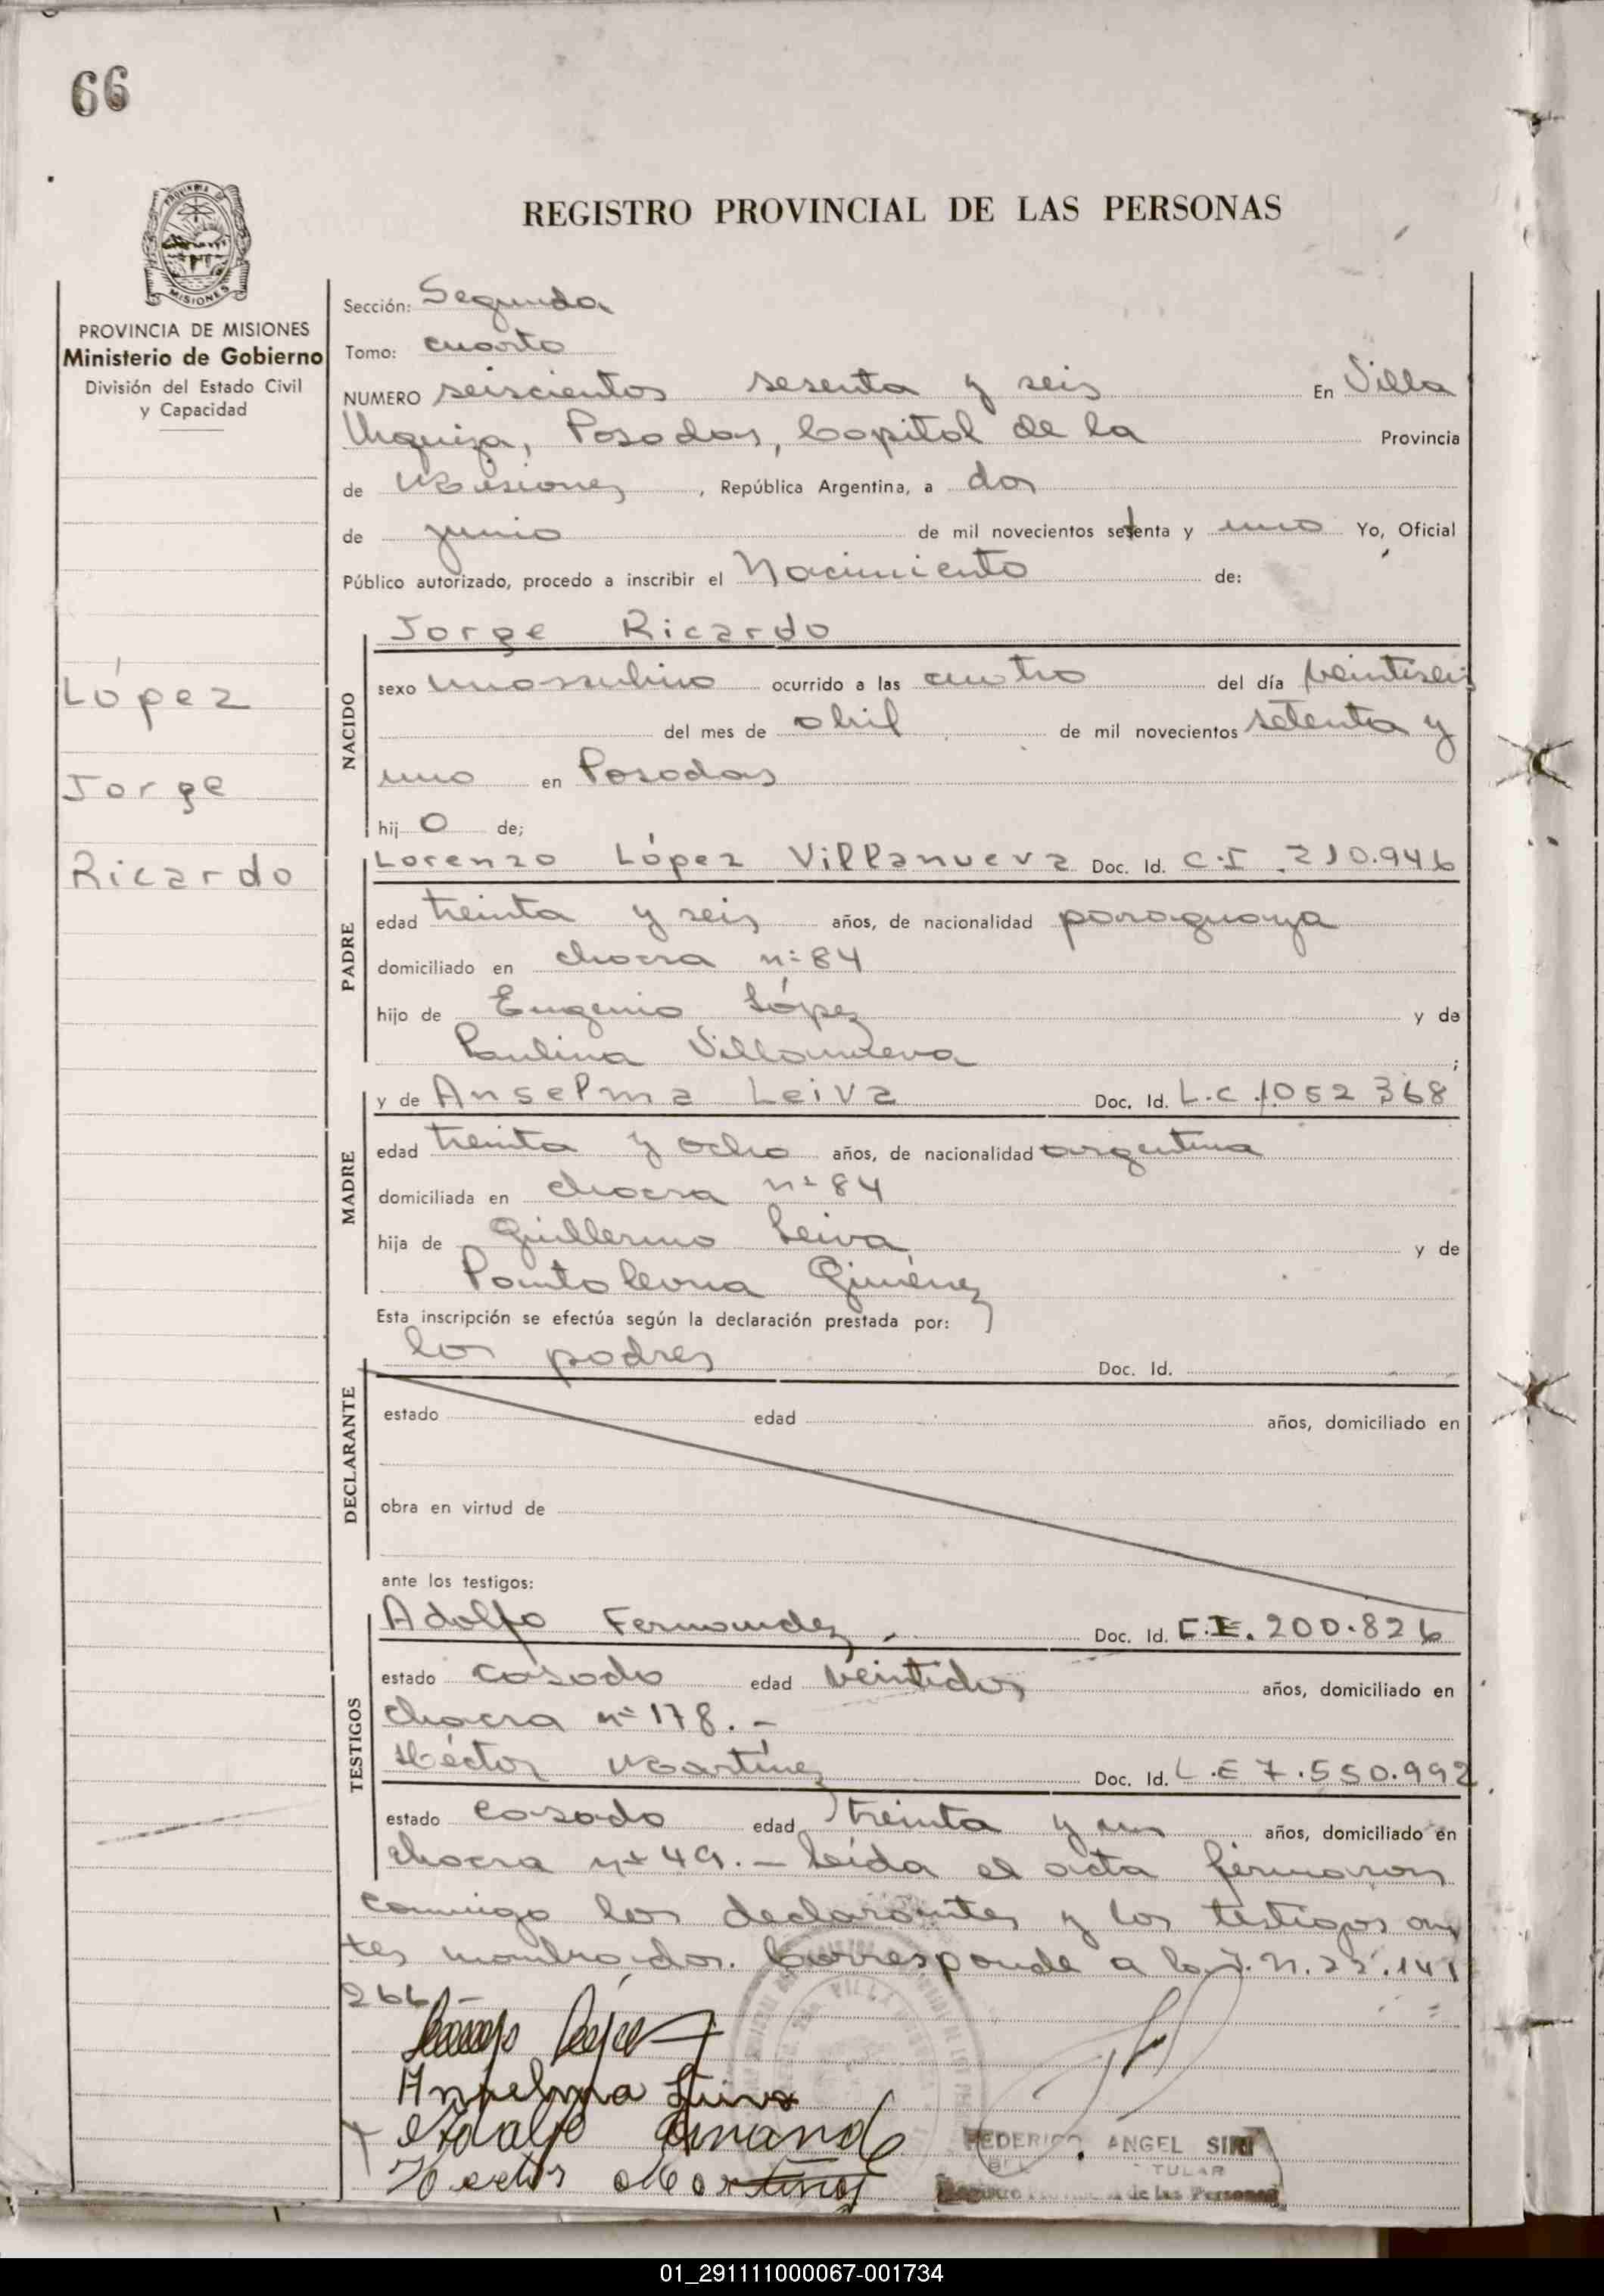 66
REGISTRO PROVINCIAL DE LAS PERSONAS
MISIONES
PROVINCIA DE MISIONES
Ministerio de Gobierno
División del Estado Civil
y Capacidad
López
Jorge
Ricardo
Sección: Segunda
Tomo: cuarto
NUMERO seiscientos sesenta y seis En Villa
Urquiza, Posadas, Capital de la Provincia
de Misiones, República Argentina, a dos
de junio de mil novecientos setenta y uno Yo, Oficial
Público autorizado, procedo a inscribir el Nacimiento de:
Jorge Ricardo
NACIDO
sexo masculino ocurrido a las cuatro del día veintiseis
del mes de abril de mil novecientos setenta y
uno en Posadas
hij o de;
PADRE
Lorenzo López Villanueva Doc. Id. C.I. 210.946
edad treinta y seis años, de nacionalidad paraguaya
domiciliado en chacra nº 84
hijo de Eugenio López y de
Paulina Villanueva ;
MADRE
y de Anselma Leiva Doc. Id. L.C. 1.052.368
edad treinta y ocho años, de nacionalidad argentina
domiciliada en chacra nº 84
hija de Guillermo Leiva y de
Pantaleona Giménez
Esta inscripción se efectúa según la declaración prestada por:
los padres Doc. Id.
DECLARANTE
estado edad años, domiciliado en
obra en virtud de
ante los testigos:
TESTIGOS
Adolfo Fernandez.- Doc. Id. C.I. 200.826
estado casado edad veintidos años, domiciliado en
chacra nº 178.-
Héctor Martínez Doc. Id. L.E 7.550.992
estado casado edad treinta y un años, domiciliado en
chacra nº 49.- Leída el acta firmaron
conmigo los declarantes y los testigos an
tes nombrados. Corresponde a la
266.-
Anselma Leiva
Adolfo Fernand
Hector Martinez
FEDERICO ANGEL SIRI
TULAR
Registro Provincial de las Personas
01_291111000067-001734